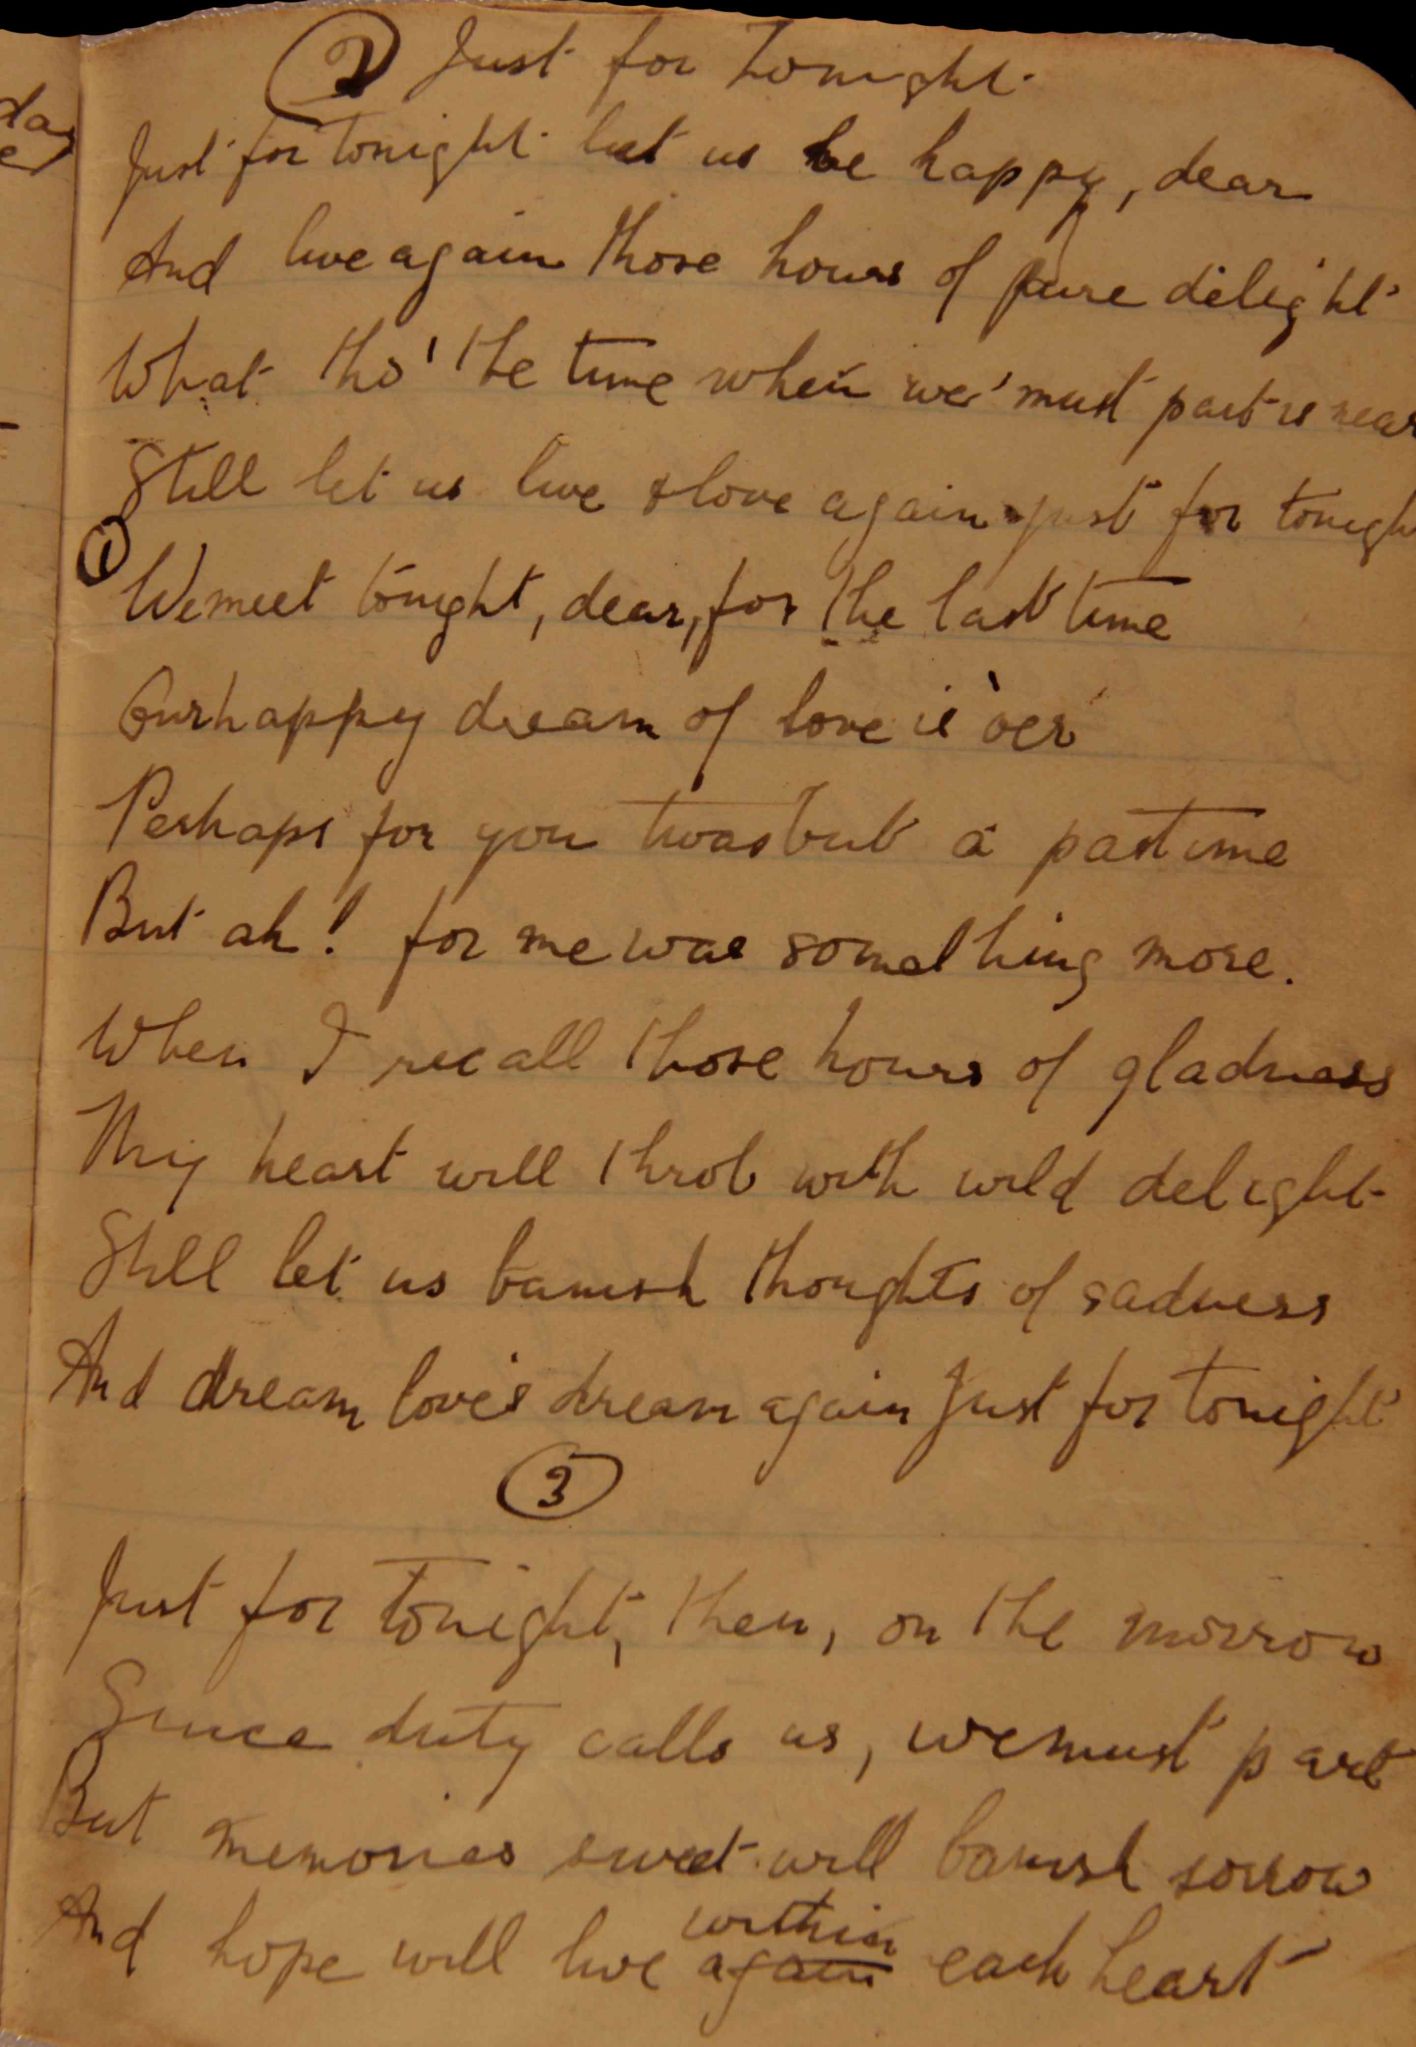 ② Just for tonight
Just for tonight let us be happy, dear
And live again those hours of pure delight
What tho' the time when we must part is near
Still let us live & love again just for tonigh
①
We meet tonight, dear, for the last time
Our happy dream of love is o'er
Perhaps for you twas but a pastime
But ah! for me was something more.
When I recall those hours of gladness
My heart will throb with wild delight
Still let us banish thoughts of sadness
And dream love's dream again Just for tonight
③
Just for tonight, then, on the morrow
Since duty calls us, we must part
But memories sweet will banish sorrow
within
And hope will live again each heart